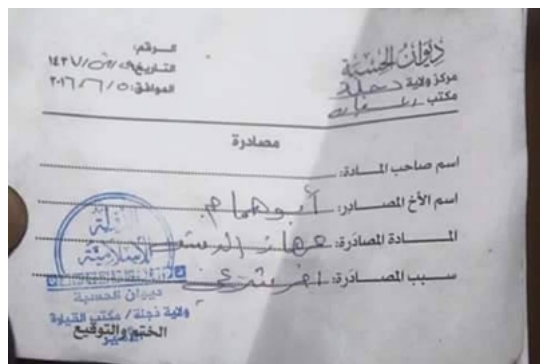 ديوان الحسبة
مركز ولاية دجلة
مكتب
الرقم:
التاريخ: / /١٤٣٧
الموافق: ٥/٦/٢٠١٦
مصادرة
اسم صاحب المادة:
اسم الأخ المصادر: أبو همام
المادة المصادرة: جهاز الدش
سبب المصادرة:
الإسلامية
ديوان الحسبة
ولاية دجلة / مكتب القيارة
الختم والتوقيع